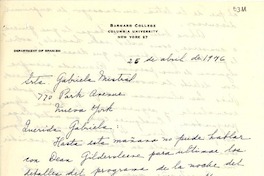 BARNARD COLLEGE
COLUMBIA UNIVERSITY
NEW YORK 27
DEPARTMENT OF SPANISH
25 de abril de 1946
Srta. Gabriela Mistral
770 Park Avenue
Nueva York
Querida Gabriela:
Hasta esta mañana no pude hablar
con Dean Gildersleeve para ultimar los
detalles del programa de la noche del